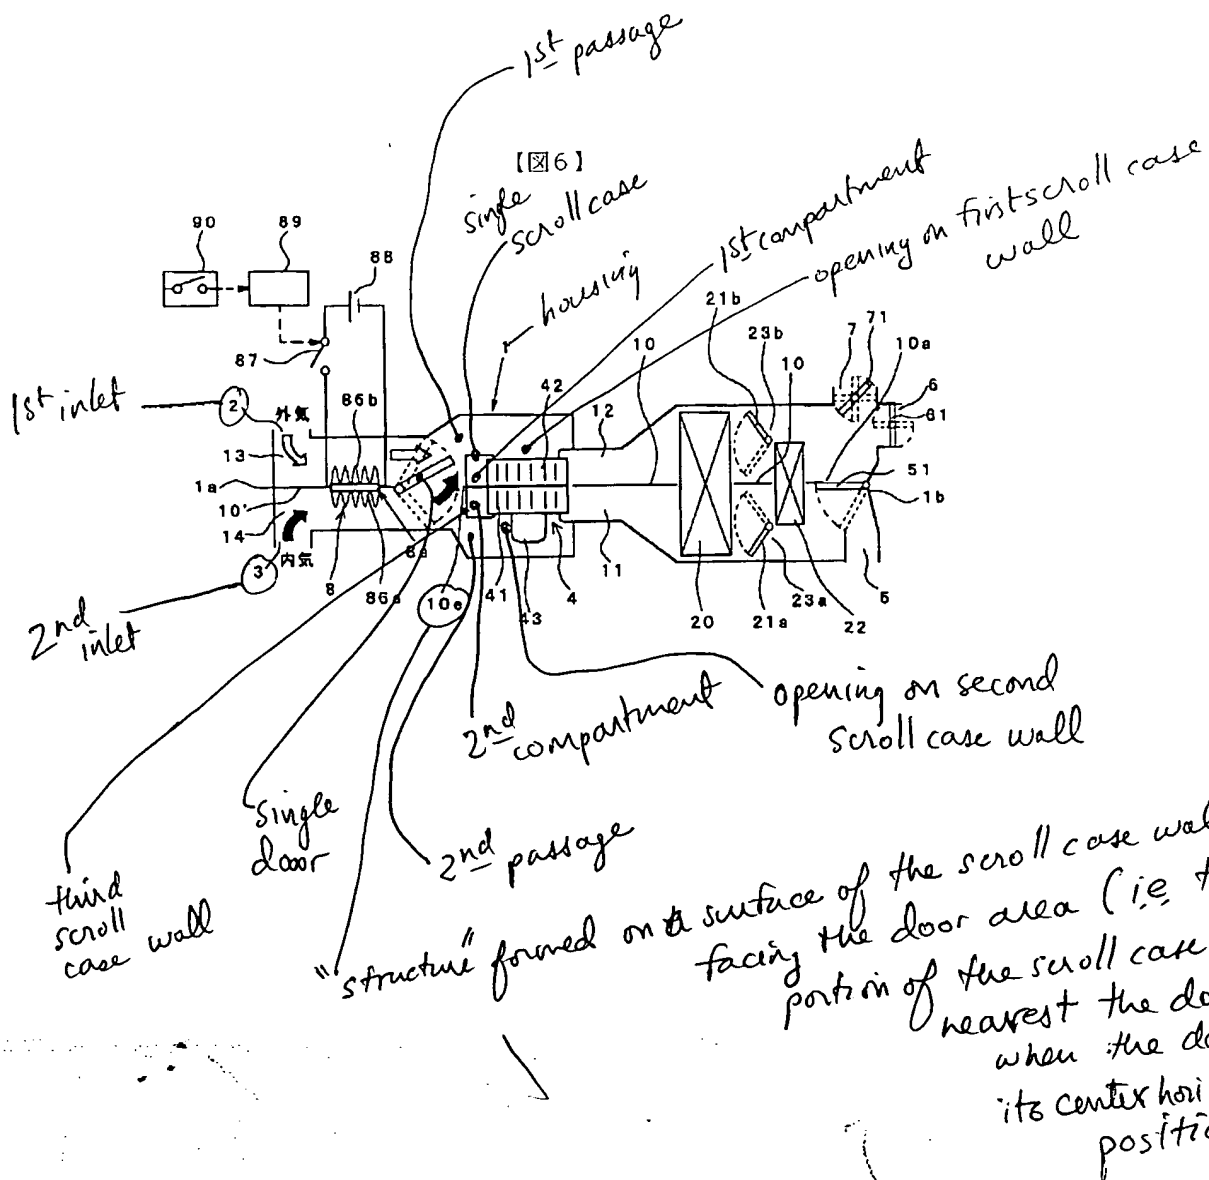 1st passage
【図6】
single
scroll case
1st compartment
opening on first scroll case
wall
housing
90
89
88
87
1
21b
23b
7
71
10a
10
10
6
61
42
12
1st inlet
2
外気
86b
13
1a
10'
14
51
1b
3
内気
8
86a
8a
10e
41
43
4
11
20
21a
23a
22
5
2nd
inlet
2nd
compartment
opening on second
scroll case wall
single
door
2nd passage
third
scroll
case wall
"structure" formed on a surface of the scroll case wal
facing the door area (i.e t
portion of the scroll case
nearest the do
when the do
its center hori
positi